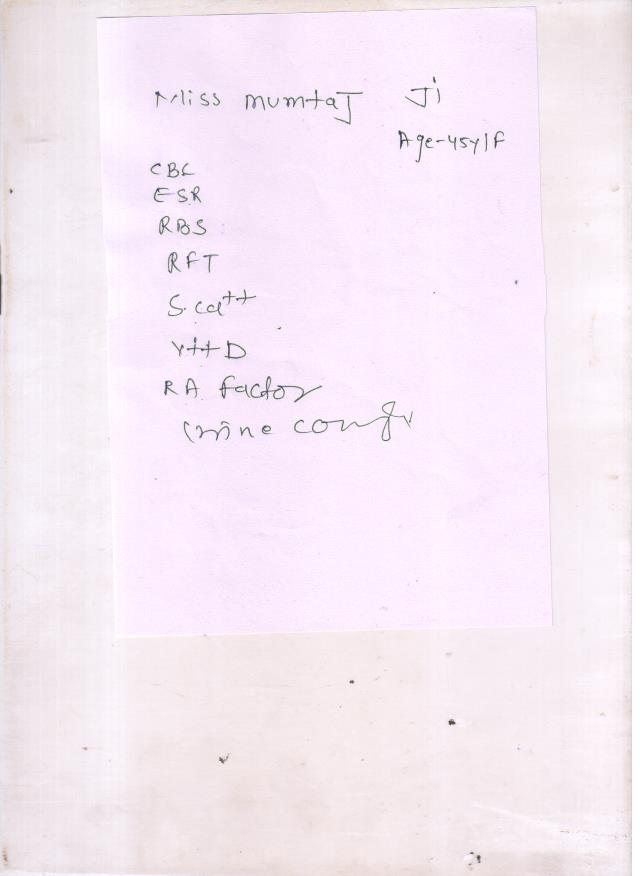 Miss mumtaJ Ji
Age-45y/F
CBC
ESR
RBS
RFT
S.ca++
vitt D
RA factor
urine